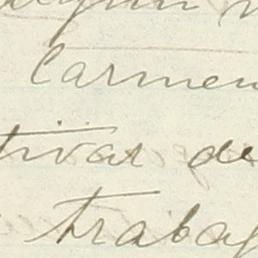 Carmen
tivar de
trabag